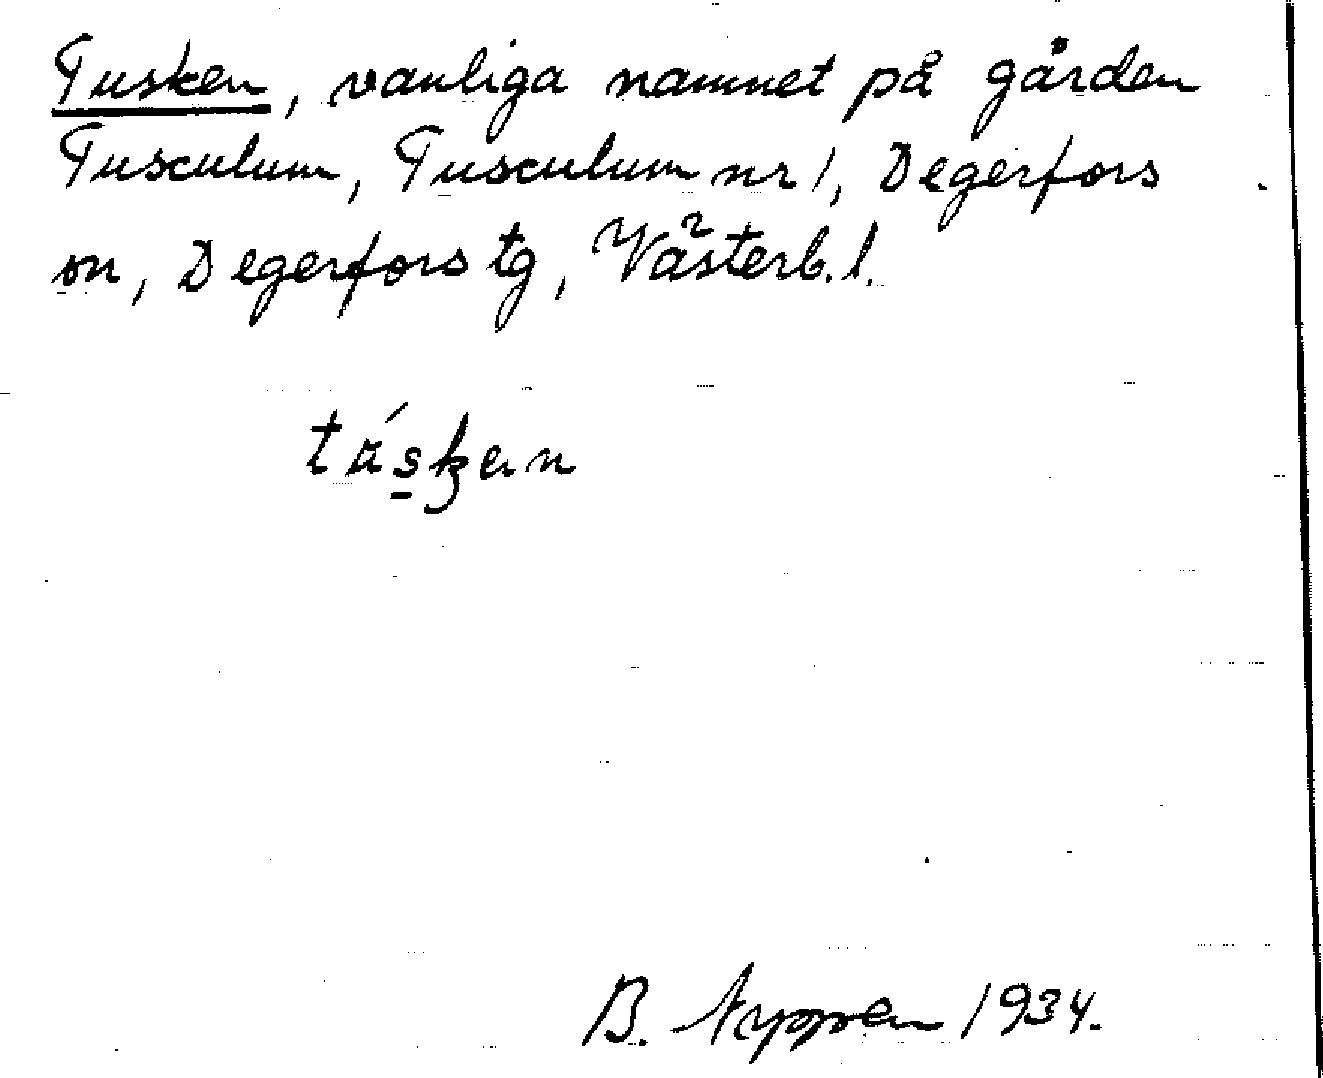 Tusken, vanliga namnet på gården
Tusculum, Tusculum nr 1, Degerfors
sn, Degerfors tg, Västerb. l.
B. 1934.